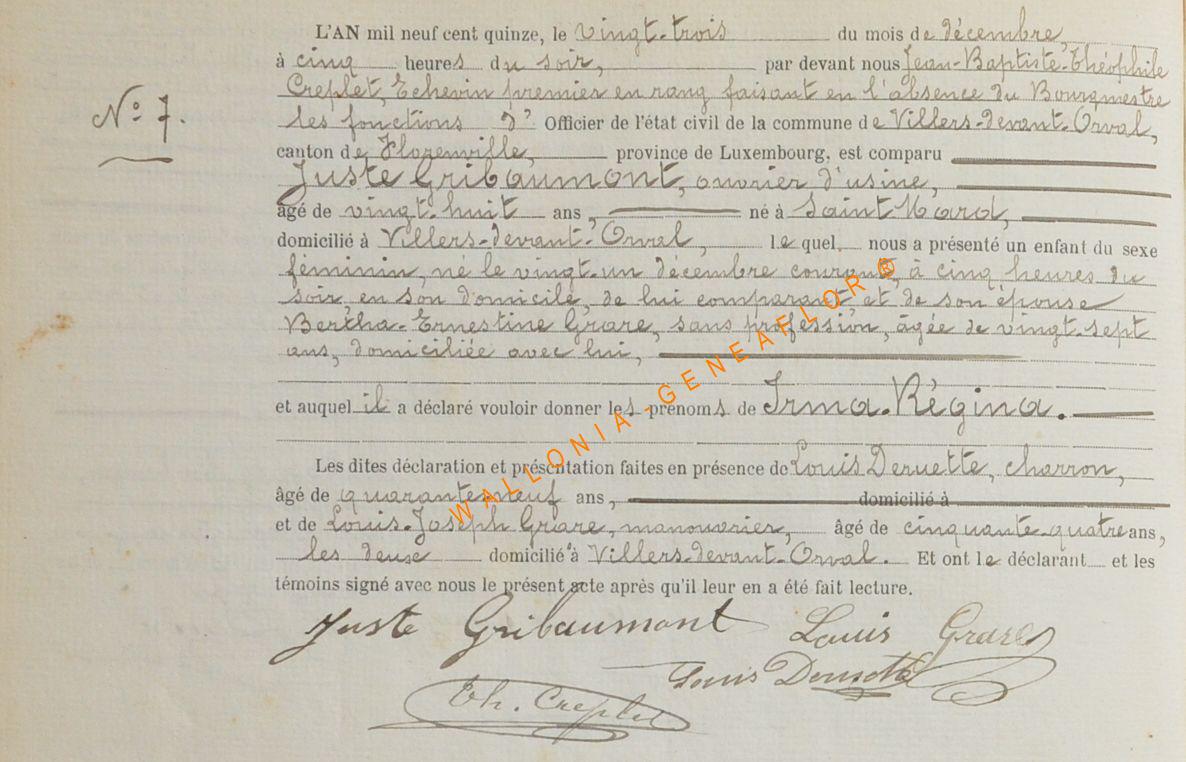 L'AN mil neuf cent quinze, le vingt-trois du mois de décembre,
à cinq heures du soir, par devant nous Jean-Baptiste-Théophile
Creplet, Echevin premier en rang faisant en l'absence du Bourgmestre
les fonctions d' Officier de l'état civil de la commune de Villers-devant-Orval,
N° 7.
canton de Florenville, province de Luxembourg, est comparu
Juste Gribaumont, ouvrier d'usine,
âgé de vingt-huit ans, né à Saint Mard,
domicilié à Villers-devant-Orval, lequel nous a présenté un enfant du sexe
féminin, né le vingt-un décembre courant, à cinq heures du
soir en son domicile, de lui comparant et de son épouse
Bertha-Ernestine Grare, sans profession, âgée de vingt-sept
ans, domiciliée avec lui,
et auquel il a déclaré vouloir donner les prénoms de Irma-Régina.
Les dites déclaration et présentation faites en présence de Louis charron,
âgé de quarante neuf ans, domicilié à
et de Louis-Joseph Grare, manouvrier, âgé de cinquante-quatre ans,
les deux domiciliés à Villers-devant-Orval. Et ont le déclarant et les
témoins signé avec nous le présent acte après qu'il leur en a été fait lecture.
Juste Gribaumont Louis Grare
Louis
Th. Creplet
WALLONIA-GENEAFLOR ®